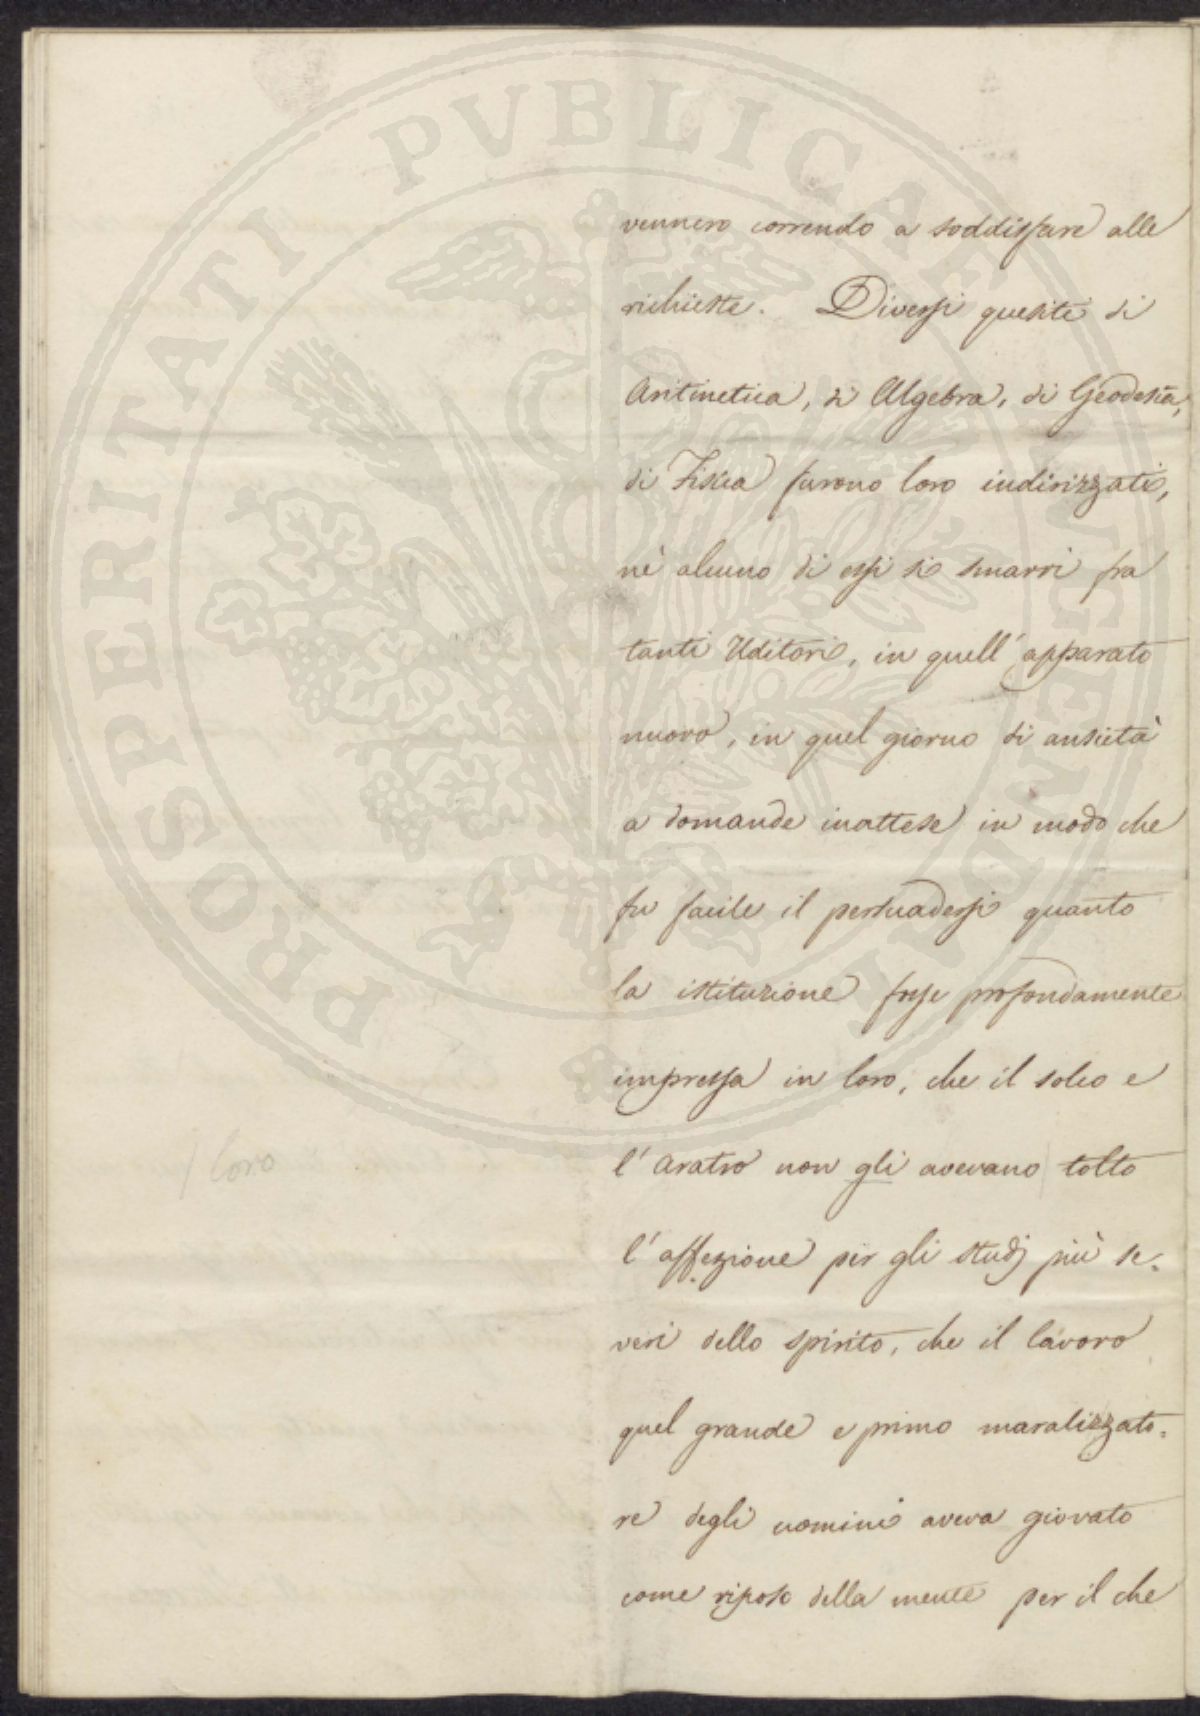 vennero correndo a soddisfare alle
richieste. Diversi quesiti di
Aritmetica, di Algebra, di Geodesia,
di Fisica furono loro indirizzati,
nè alcuno di essi si smarrì fra
tanti Uditori, in quell'apparato
nuovo, in quel giorno di ansietà
a domande inattese in modo che
fu facile il persuadersi quanto
la istituzione fosse profondamente
impressa in loro, che il solco e
/ loro
l'aratro non gli avevano tolto
l'affezione per gli studj più se=
veri dello spirito, che il lavoro
quel grande e primo maralizzato=
re degli uomini aveva giovato
come riposo della mente per il che
PROSPERITATI PVBLICAE AVGENDAE